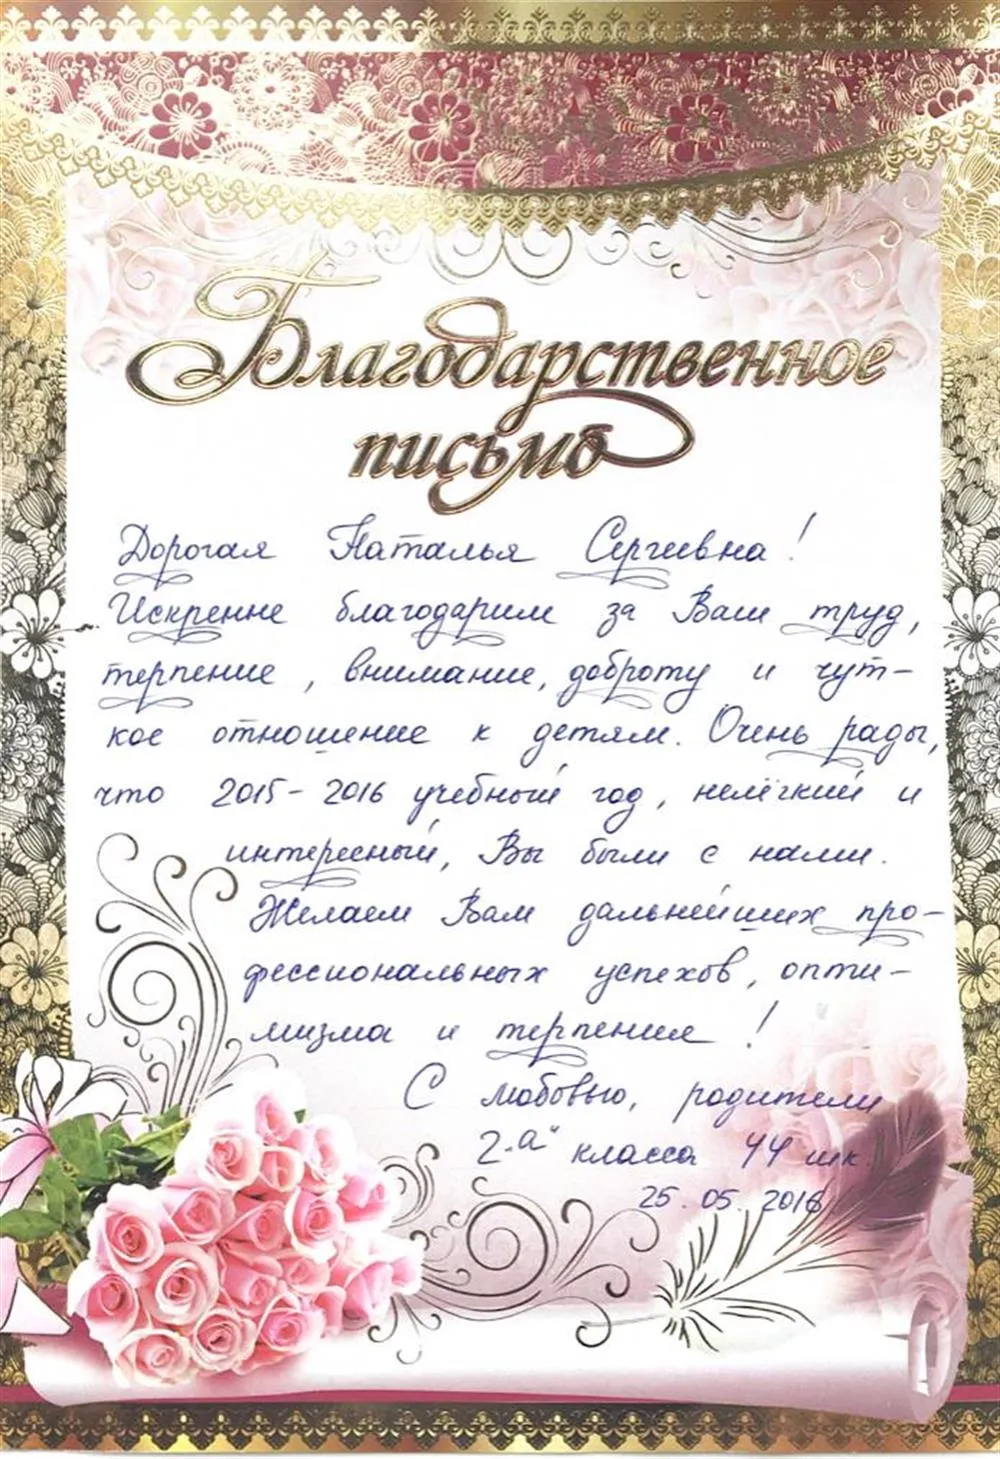 Благодарственное
письмо
Дорогая Наталья Сергеевна!
Искренне благодарим за Ваш труд,
терпение, внимание, доброту и чут-
кое отношение к детям. Очень рады,
что 2015-2016 учебный год, нелёгкий и
интересный, Вы были с нами.
Желаем Вам дальнейших про-
фессиональных успехов, опти-
мизма и терпения!
С любовью, родители
2-"а" класса 44 шк.
25.05.2016